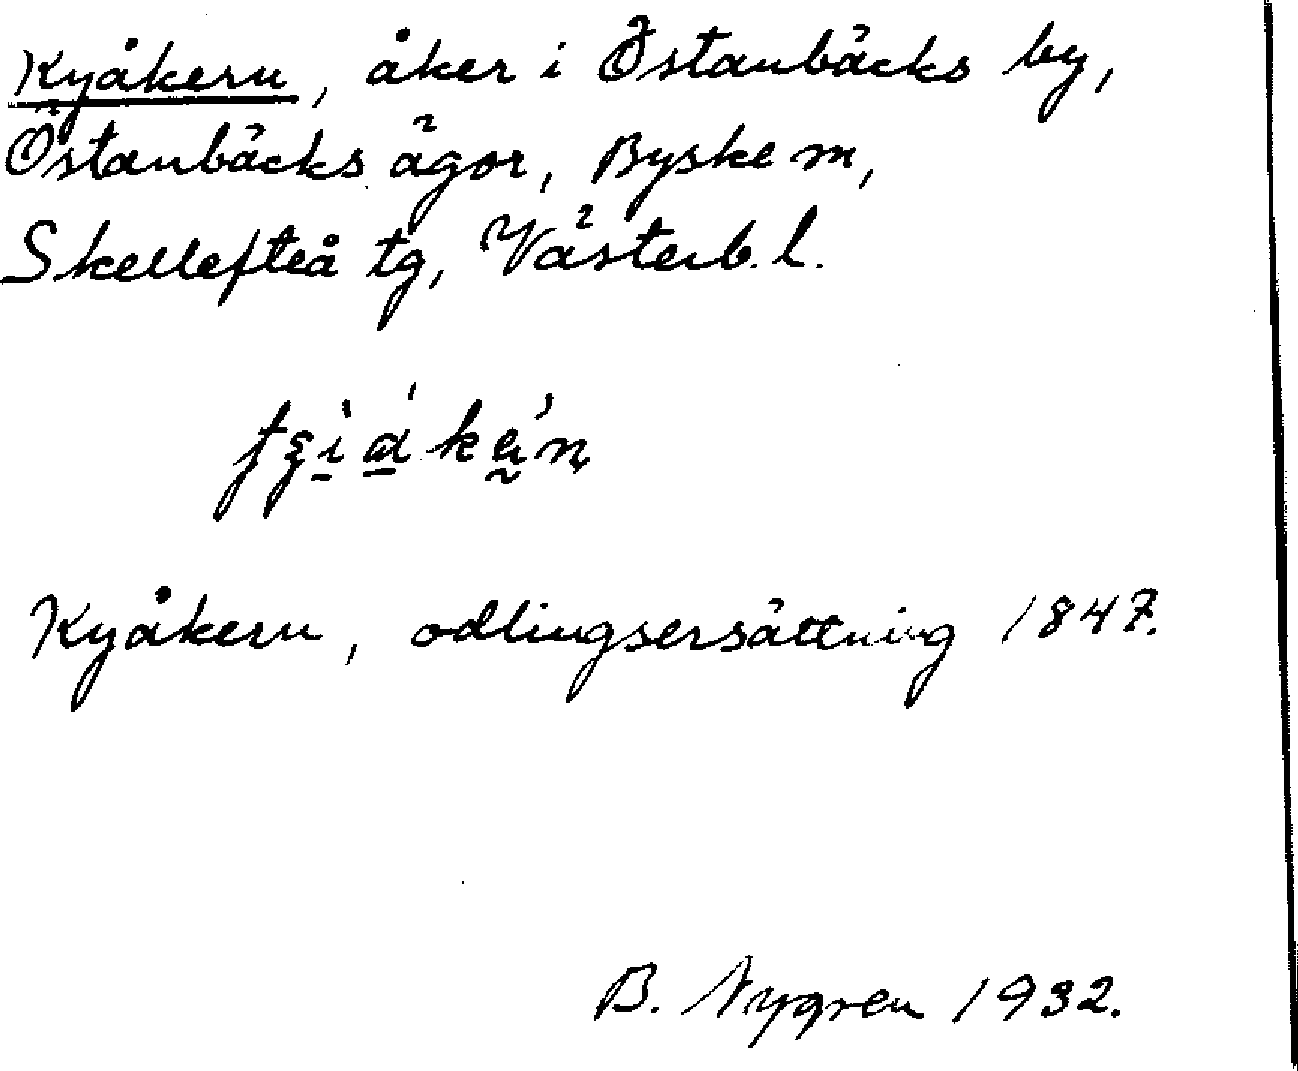 Kyåkern, åker i Östanbäcks by,
Östanbäcks ägor, Byske m,
Skellefteå tg, Västerb. l.
Kyåkern, odlingsersättning 1847.
B. Nygren 1932.